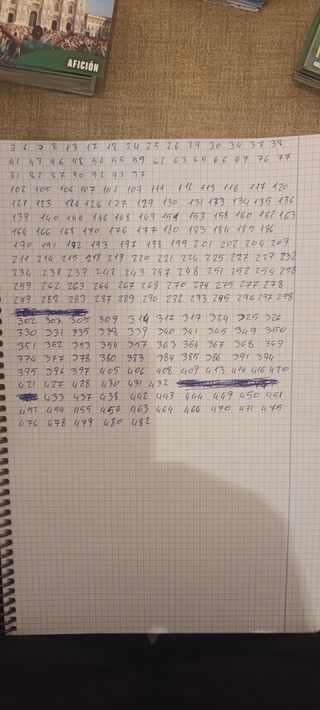 AFICIÓN
3 6 7 8 13 17 18 24 25 26 29 30 34 37 38
41 43 46 48 54 55 59 62 63 65 66 69 76 77
81 82 87 90 92 93 97
102 105 106 107 108 109 111 112 113 116 117 120
121 123 124 126 127 129 130 131 133 134 135 136
139 140 144 146 148 149 151 153 158 160 162 163
164 166 168 170 176 177 180 183 184 185 186
190 191 192 193 197 198 199 201 202 204 209
211 214 215 218 219 220 221 224 225 227 229 232
236 238 239 242 243 247 248 251 252 254 258
259 262 263 264 267 268 270 274 275 277 278
279 282 283 287 289 290 292 293 295 296 297 298
302 303 305 309 314 317 319 324 325 326
330 331 335 338 339 340 341 345 349 350
351 352 353 354 357 363 364 367 368 369
374 377 378 380 383 384 385 386 391 394
395 396 397 405 406 408 409 413 414 416 420
421 427 428 430 431 432
433 437 438 442 443 444 449 450 451
452 454 455 456 463 464 466 470 471 475
476 478 479 480 482